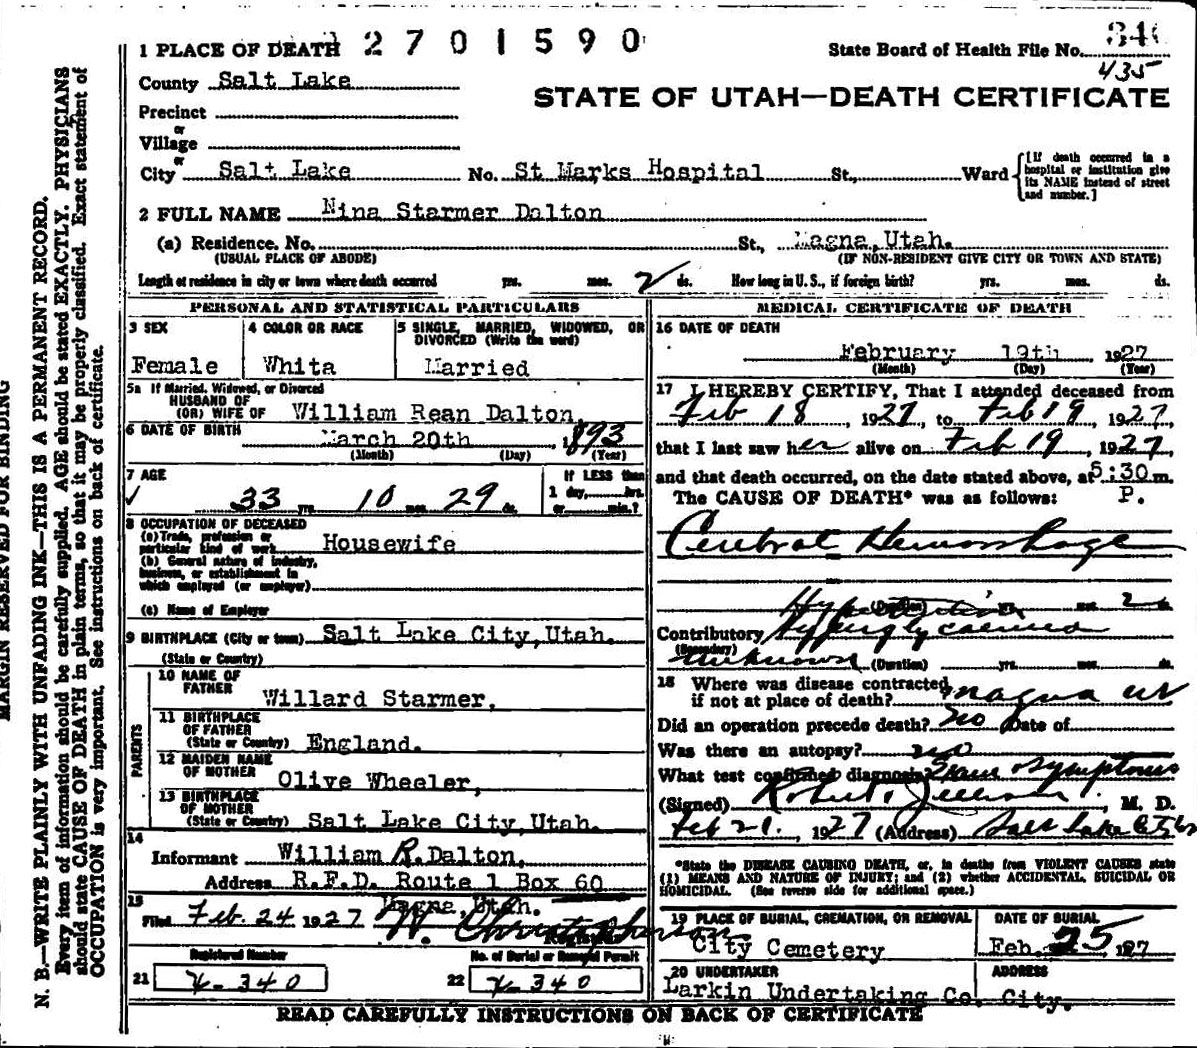 1 PLACE OF DEATH 2701590
State Board of Health File No. 340
435
County Salt Lake
STATE OF UTAH—DEATH CERTIFICATE
Precinct
or
Village
or
City Salt Lake No. St Marks Hospital St., Ward {[If death occurred in a hospital or institution give its NAME instead of street and number.]
2 FULL NAME Nina Starmer Dalton
(a) Residence. No. St., Magna, Utah.
(USUAL PLACE OF ABODE) (IF NON-RESIDENT GIVE CITY OR TOWN AND STATE)
Length of residence in city or town where death occurred yrs. mos. 2 ds. How long in U. S., if foreign birth? yrs. mos. ds.
PERSONAL AND STATISTICAL PARTICULARS
3 SEX
Female
4 COLOR OR RACE
Whita
5 SINGLE, MARRIED, WIDOWED, OR
DIVORCED (Write the word)
Married
5a If Married, Widowed, or Divorced
HUSBAND OF
(OR) WIFE OF William Rean Dalton,
6 DATE OF BIRTH March 20th, 1893
(Month) (Day) (Year)
7 AGE
33 yrs. 10 mos. 29 ds.
If LESS than
1 day, hrs.
or min.?
8 OCCUPATION OF DECEASED
(a) Trade, profession or
particular kind of work Housewife
(b) General nature of industry,
business, or establishment in
which employed (or employer)
(c) Name of Employer
9 BIRTHPLACE (City or town) Salt Lake City, Utah.
(State or Country)
PARENTS
10 NAME OF
FATHER Willard Starmer,
11 BIRTHPLACE
OF FATHER
(State or Country) England.
12 MAIDEN NAME
OF MOTHER Olive Wheeler,
13 BIRTHPLACE
OF MOTHER
(State or Country) Salt Lake City, Utah.
14
Informant William R. Dalton,
Address R.F.D. Route 1 Box 60
Magna, Utah.
15
Filed Feb. 24 1927 W. Christopherson
Registrar
Registered Number
21 X-340
No. of Burial or Removal Permit
22 X-340
MEDICAL CERTIFICATE OF DEATH
16 DATE OF DEATH
February 19th 1927
(Month) (Day) (Year)
17 I HEREBY CERTIFY, That I attended deceased from
Feb 18, 1927, to Feb 19, 1927,
that I last saw her alive on Feb 19, 1927,
and that death occurred, on the date stated above, at 5:30 m.
The CAUSE OF DEATH* was as follows: P.
Cerebral Hemorrhage
(Duration) yrs. mos. 2 ds.
Contributory Hyperglycaemia
(Secondary)
unknown (Duration) yrs. mos. ds.
18 Where was disease contracted
if not at place of death? magna ut
Did an operation precede death? no Date of
Was there an autopsy? no
What test confirmed diagnosis? Exam & symptoms
(Signed) Robert, M. D.
Feb 21, 1927 (Address) Salt Lake City
*State the DISEASE CAUSING DEATH, or, in deaths from VIOLENT CAUSES state
(1) MEANS AND NATURE OF INJURY; and (2) whether ACCIDENTAL, SUICIDAL OR
HOMICIDAL. (See reverse side for additional space.)
19 PLACE OF BURIAL, CREMATION, OR REMOVAL
City Cemetery
DATE OF BURIAL
Feb. 25 1927
20 UNDERTAKER
Larkin Undertaking Co.
ADDRESS
City.
READ CAREFULLY INSTRUCTIONS ON BACK OF CERTIFICATE
MARGIN RESERVED FOR BINDING
N. B.—WRITE PLAINLY WITH UNFADING INK—THIS IS A PERMANENT RECORD.
Every item of information should be carefully supplied. AGE should be stated EXACTLY. PHYSICIANS
should state CAUSE OF DEATH in plain terms, so that it may be properly classified. Exact statement of
OCCUPATION is very important. See instructions on back of certificate.